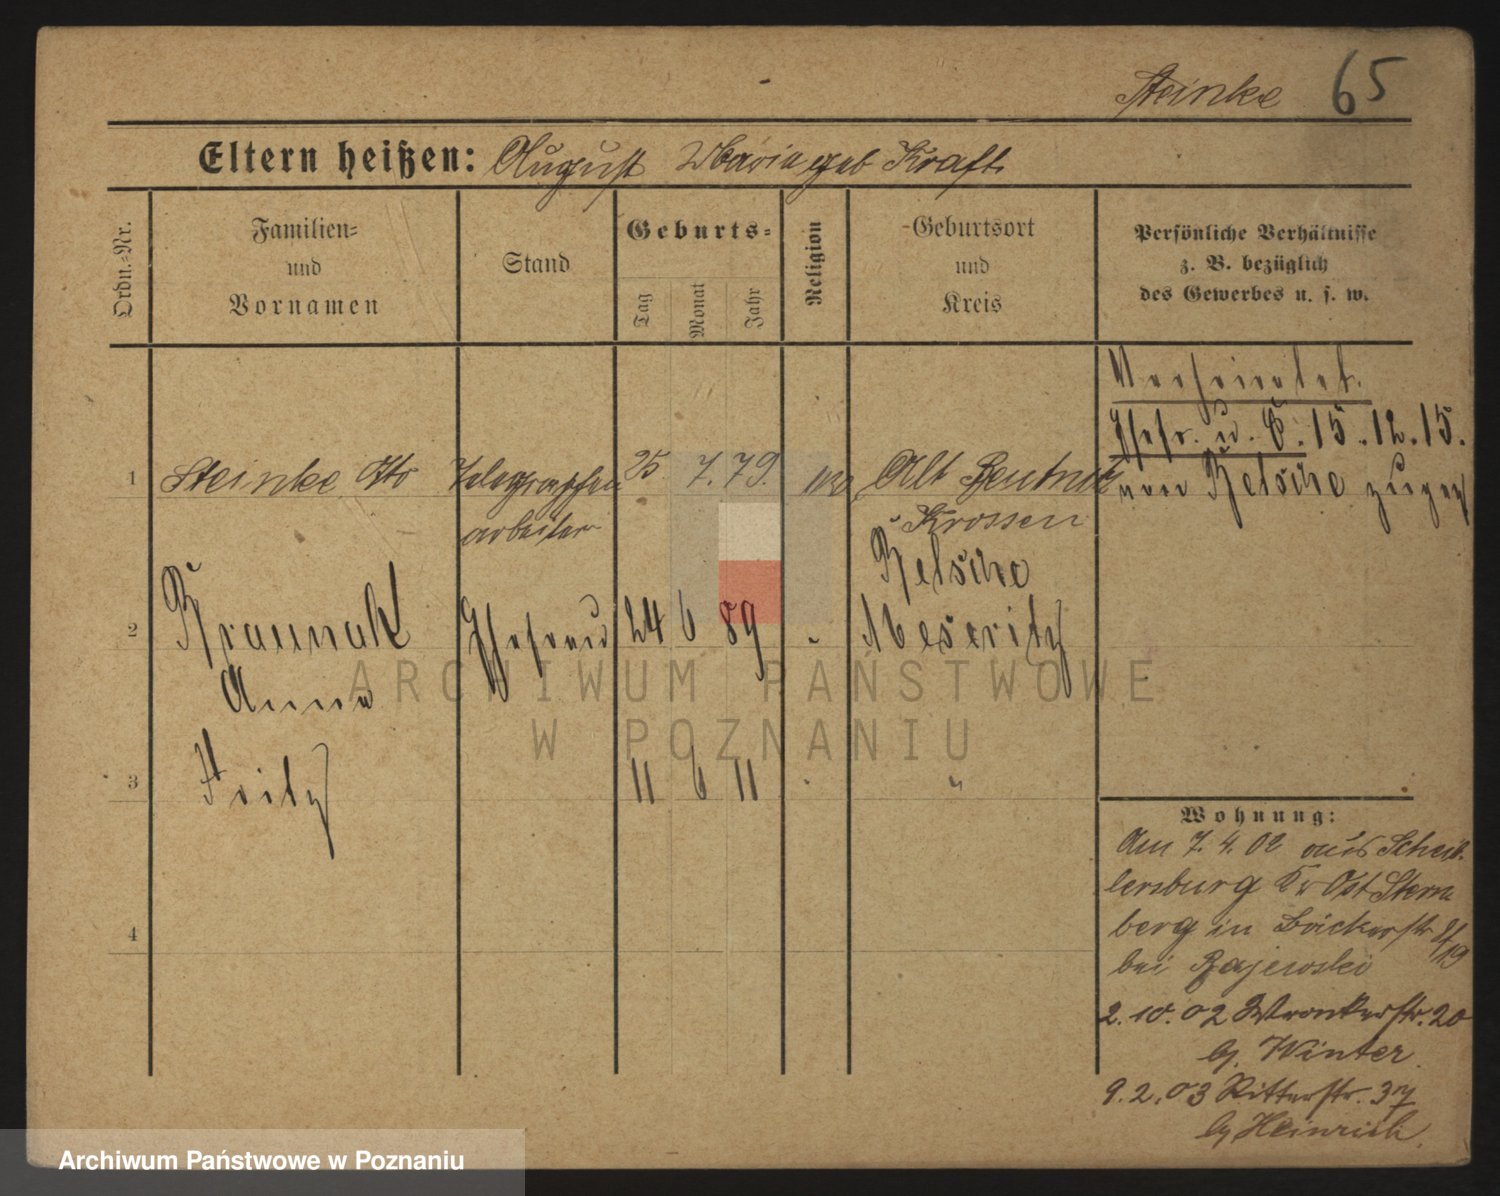 Steinke 65
Eltern heißen: August Maria geb Kraft
Ordn.-Nr.
Familien-
und
Vornamen
Stand
Geburts-
Tag
Monat
Jahr
Religion
Geburtsort
und
Kreis
Persönliche Verhältnisse
z. B. bezüglich
des Gewerbes u. s. w.
Verheiratet.
Ehefr. u. 15.12.15.
von Betsche zugez
1 Steinke Otto Telegraphen 25 7. 79. Alt Beutnitz
arbeiter Krossen
Betsche
2 Braunak Ehefrau 24 6 89 " Meseritz
Anna
3 Fritz 11 6 11 "
4
Wohnung:
Am 7.4.02 aus Scheib-
lersburg Kr Ost Stern
berg in Bäckerstr
bei Bajewski
2.10.02 Wronkerstr. 20
b/ Winter
9.2.03 Ritterstr. 37
b/ Heinrich
ARCHIWUM PAŃSTWOWE
W POZNANIU
Archiwum Państwowe w Poznaniu